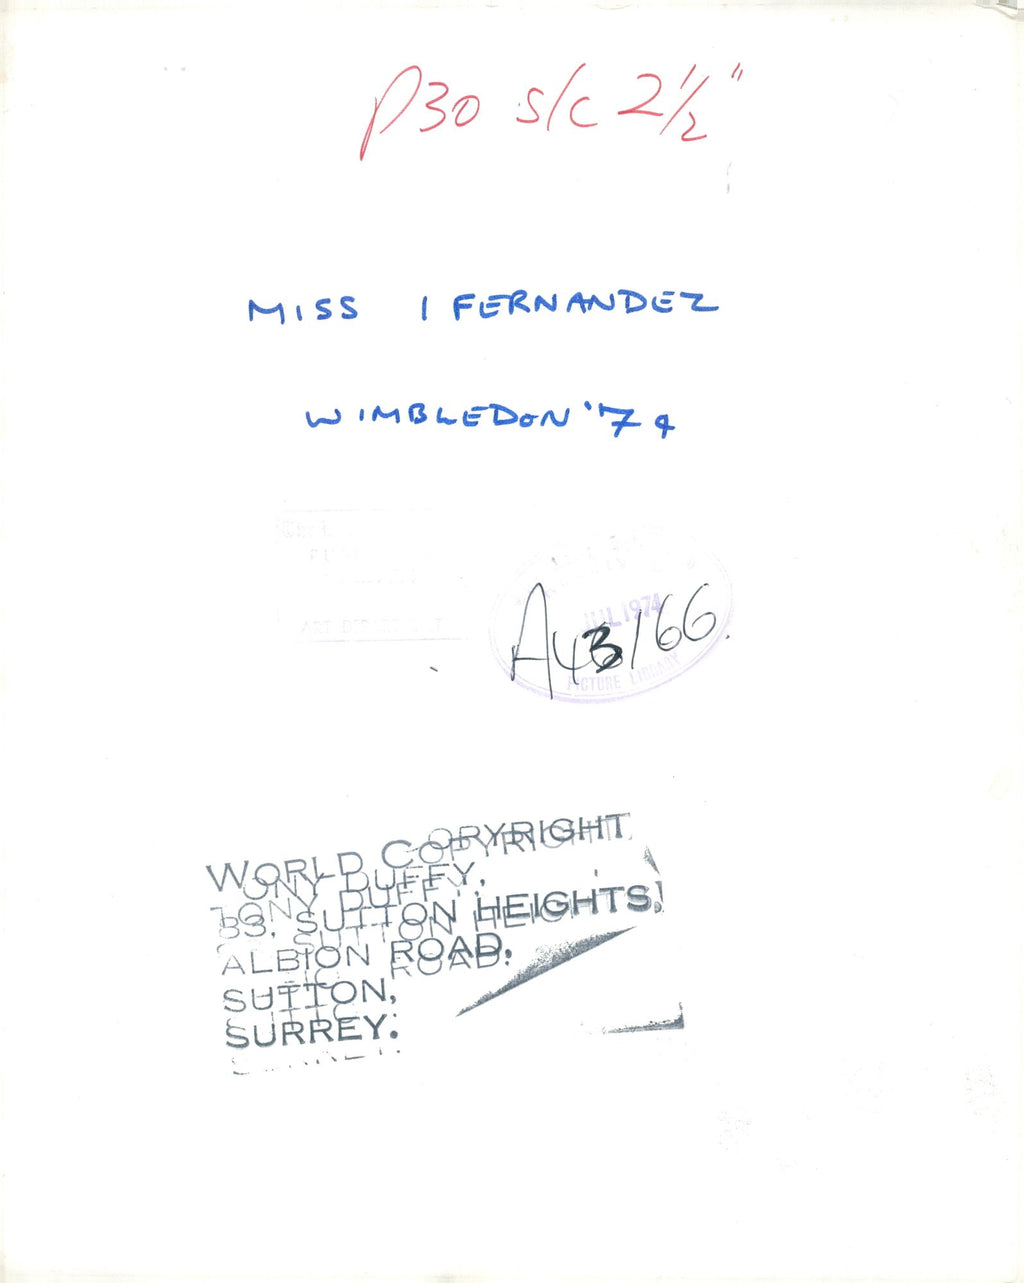 P30 s/c 2½"
MISS I FERNANDEZ
WIMBLEDON '74
ART DEPARTMENT
JUL 1974
A43/66.
PICTURE LIBRARY
WORLD COPYRIGHT
TONY DUFFY,
SUTTON HEIGHTS,
ALBION ROAD,
SUTTON,
SURREY.